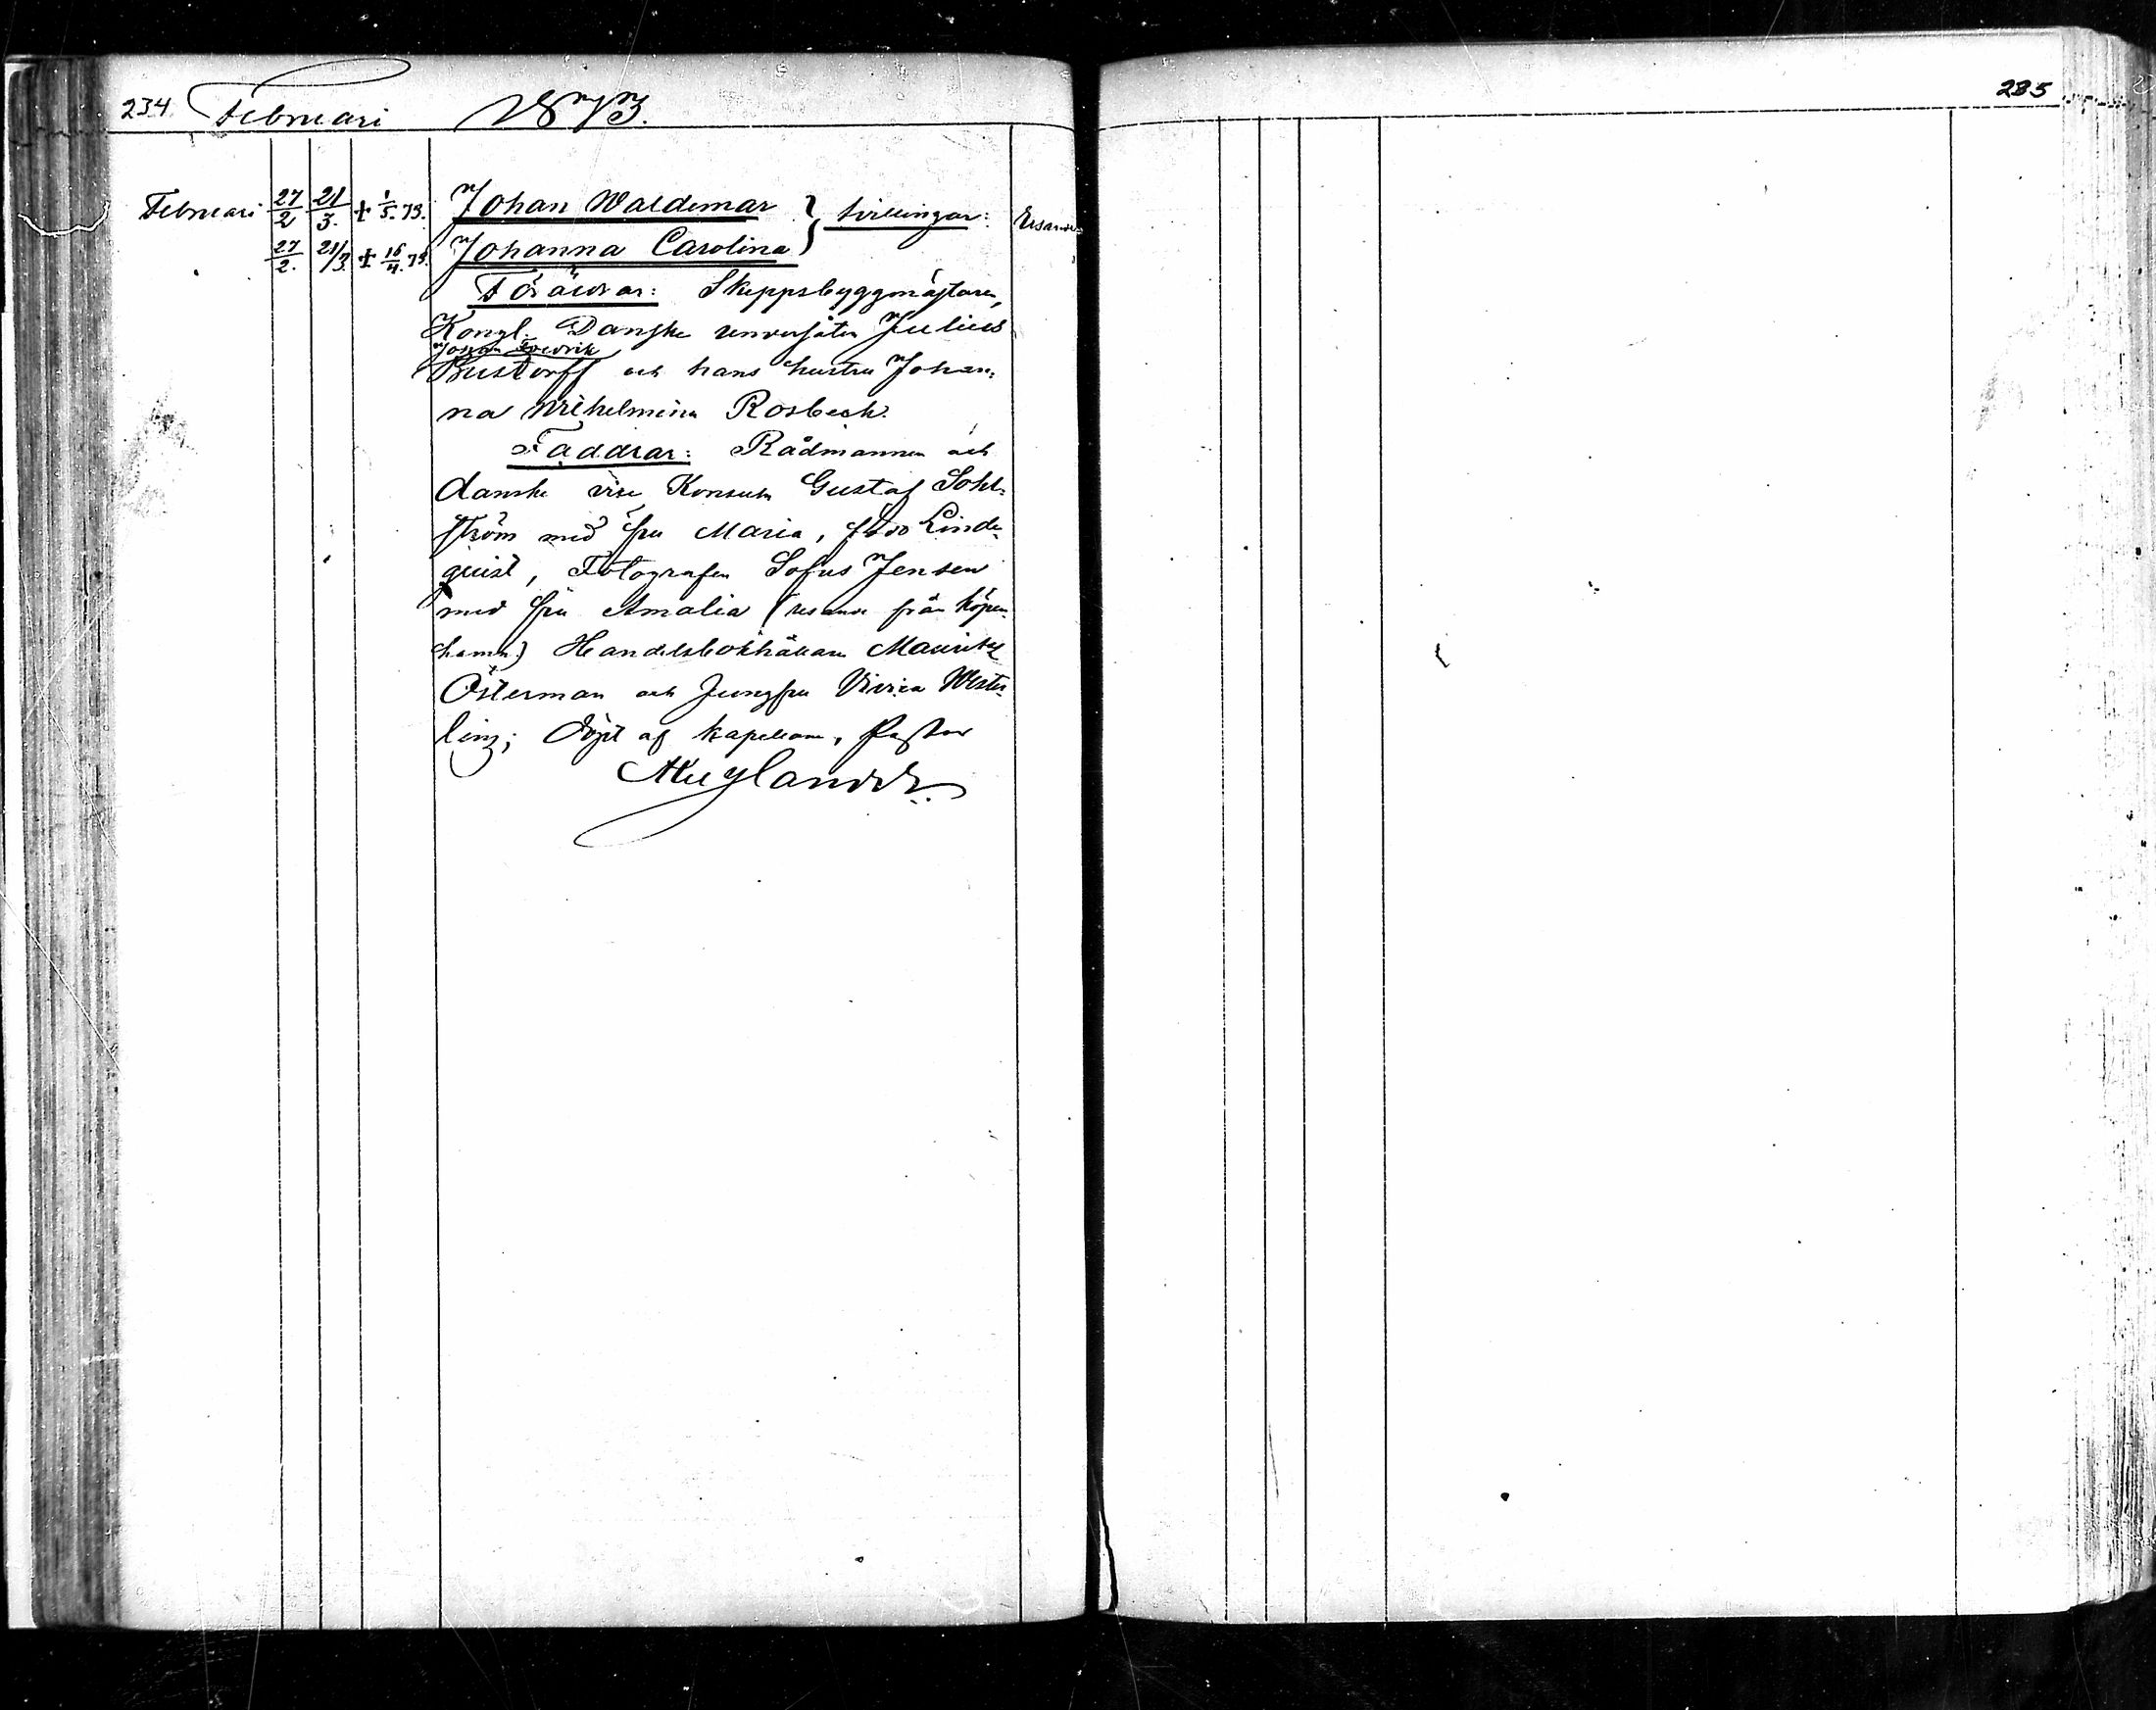 234. Februari 1873.
Februari 27/2 21/3. + 1/5. 73. Johan Waldemar } tvillingar:
27/2. 21/3. + 16/4. 73. Johanna Carolina
Föräldrar: Skeppsbyggmästaren,
Kongl. Danske undersåten Julius
Johan Fredrik
och hans hustru Johan-
na Wilhelmina Rosbeck.
Faddrar: Rådmannen och
danske vise Konsuln Gustaf Sohl-
ström med fru Maria, född Linde-
quist, Fotografen Sofus Jensen
med fru Amalia (resande från Köpen-
hamn) Handelsbokhållaren Mauritz
Österman och Jungfru Vivica Wester-
ling; döpt af kapellanen, Pastor
235